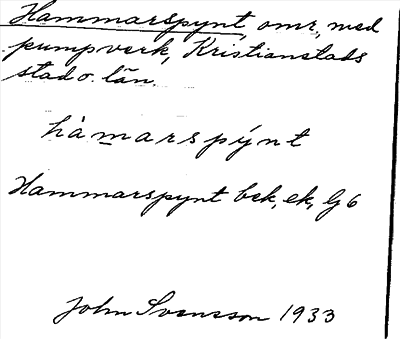 Hammarspynt, omr. med
pumpverk, Kristianstads
stad o. län.
hàmarspýnt
Hammarspynt bek, ek, G6
John Svensson 1933